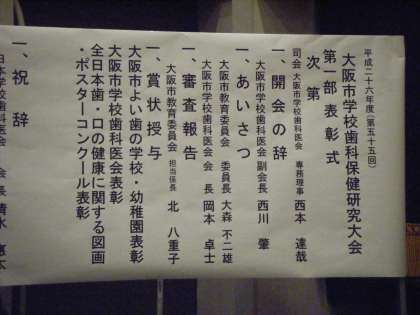 平成二十六年度(第五十五回)
大阪市学校歯科保健研究大会
第一部 表彰式
次 第
司会 大阪市学校歯科医会 専務理事 西本 達哉
一、開会の辞
大阪市学校歯科医会 副会長 西川 肇
一、あいさつ
大阪市教育委員会 委員長 大森 不二雄
大阪市学校歯科医会 会 長 岡本 卓士
一、審査報告
大阪市教育委員会 担当係長 北 八重子
一、賞状授与
大阪市よい歯の学校・幼稚園表彰
大阪市学校歯科医会表彰
全日本歯・口の健康に関する図画
・ポスターコンクール表彰
一、祝 辞
日本学校歯科医会 会 長 清水 惠太